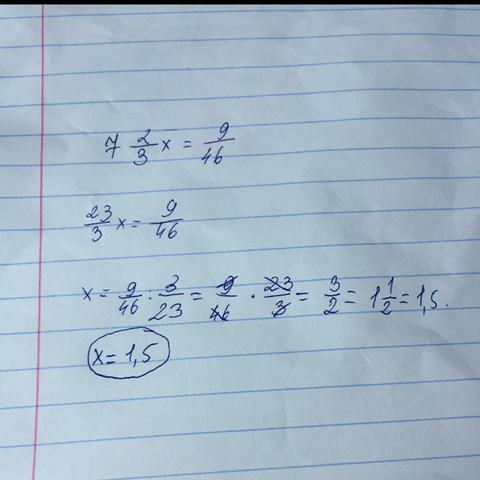 7 2/3 x = 9/46
23/3 x = 9/46
x = 9/46 : 3/23 = 9/46 · 23/3 = 3/2 = 1 1/2 = 1,5.
x = 1,5